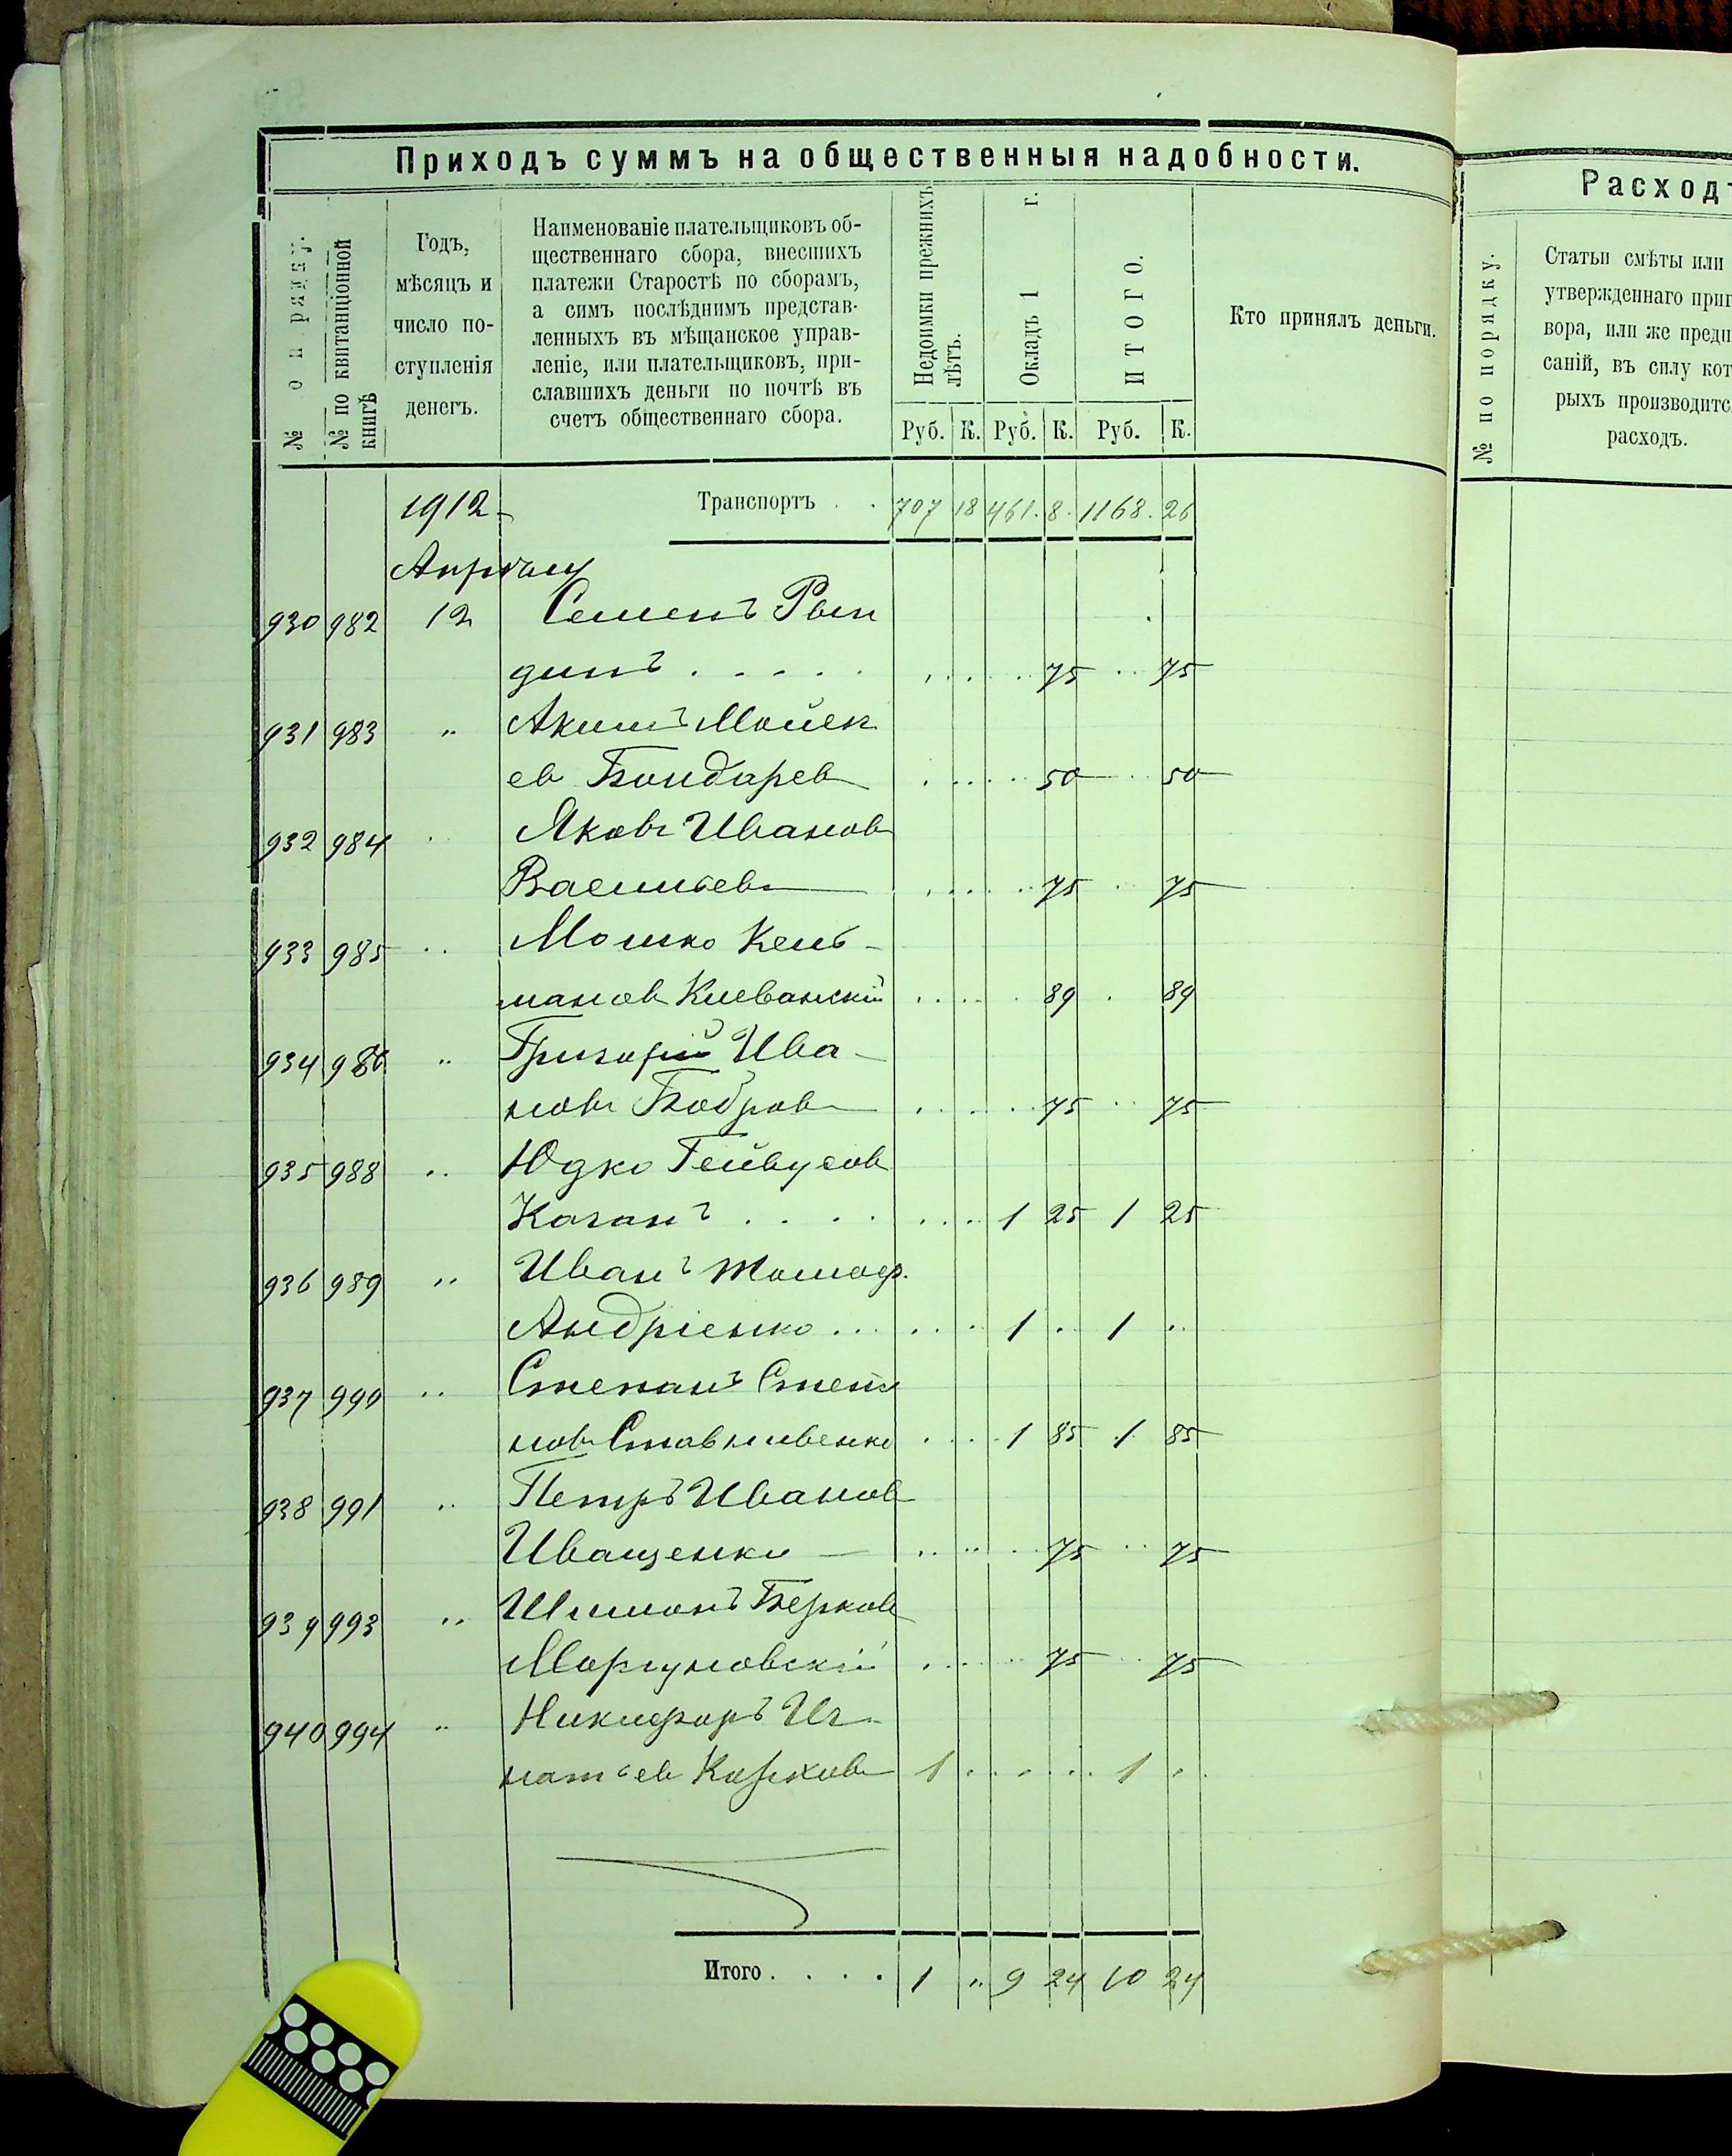 Приходъ суммъ на общественныя надобности.
№ по порядку.
№ по квитанціонной книгѣ
Годъ,
мѣсяцъ и
число по-
ступленія
денегъ.
Наименованіе плательщиковъ об-
щественнаго сбора, внесшихъ
платежи Старостѣ по сборамъ,
а симъ послѣднимъ представ-
ленныхъ въ мѣщанское управ-
леніе, или плательщиковъ, при-
славшихъ деньги по почтѣ въ
счетъ общественнаго сбора.
Недоимки прежнихъ лѣтъ.
Окладъ 1 г.
ИТОГО.
Кто принялъ деньги.
Руб. К. Руб. К. Руб. К.
1912 Транспортъ . . 707 18 461. 8. 1168. 26
930 982 12 Семенъ Рын
динъ . . . . . 75 75
931 983 " Акимъ Моисе
ев Бондарев 50 50
932 984 Яковъ Иванов
Васильевъ 75 75
933 985 " Мошко Кель-
манов 89 89
934 986 " Григорій Ива-
новъ Бобров 75 75
935 988 " Юдко Гейвусов
Каганъ . . . . 1 25 1 25
936 989 " Иванъ
Андріенко . . . 1 . 1 ..
937 990 " Степанъ Степа
новъ 1 85 1 85
938 991 " Петръ Иванов
Иващенко 75 75
939 993 " Шимонъ Берков
75 75
940 994 " Никифоръ Иг-
натьев 1 . . . 1 .
Итого . . . . 1 " 9 24 10 24
Расходъ
№ по порядку.
Статьи смѣты или
утвержденнаго приг
вора, или же предп
саній, въ силу кот
рыхъ производитс
расходъ.